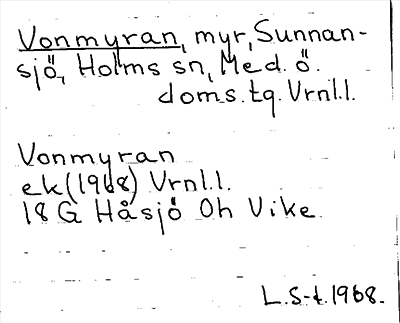 Vonmyran, myr, Sunnan-
sjö, Holms sn, Med. ö.
doms. tq. Vrnl.l.
Vonmyran
ek (1968) Vrnl.l.
18 G Håsjö Oh Vike.
L.S-t. 1968.